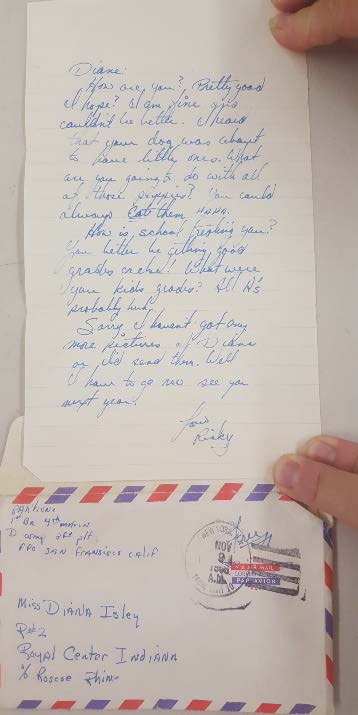 Diane:
How are you? Pretty good
I hope? I am fine
couldn't be better. I heard
that your dog was about
to have little ones. What
are you going to do with all
of those puppies? You could
always Eat them HAHA.
How is school treating you?
You better be getting good
grades
your kids grades? All A's
probably huh.
Sorry I haven't got any
more pictures of Diane
or I'd send them. Well
I have to go now see you
next year.
Love
Ricky
1st Bn 4th MARIN
D comp 2nd plt
FPO SAN FRANSISCO CALIF
NEW YORK
NOV
A.M.
VIA AIR MAIL
PAR AVION
Miss DIANA Isley
R#2
Royal Center INDIANA
% Roscoe